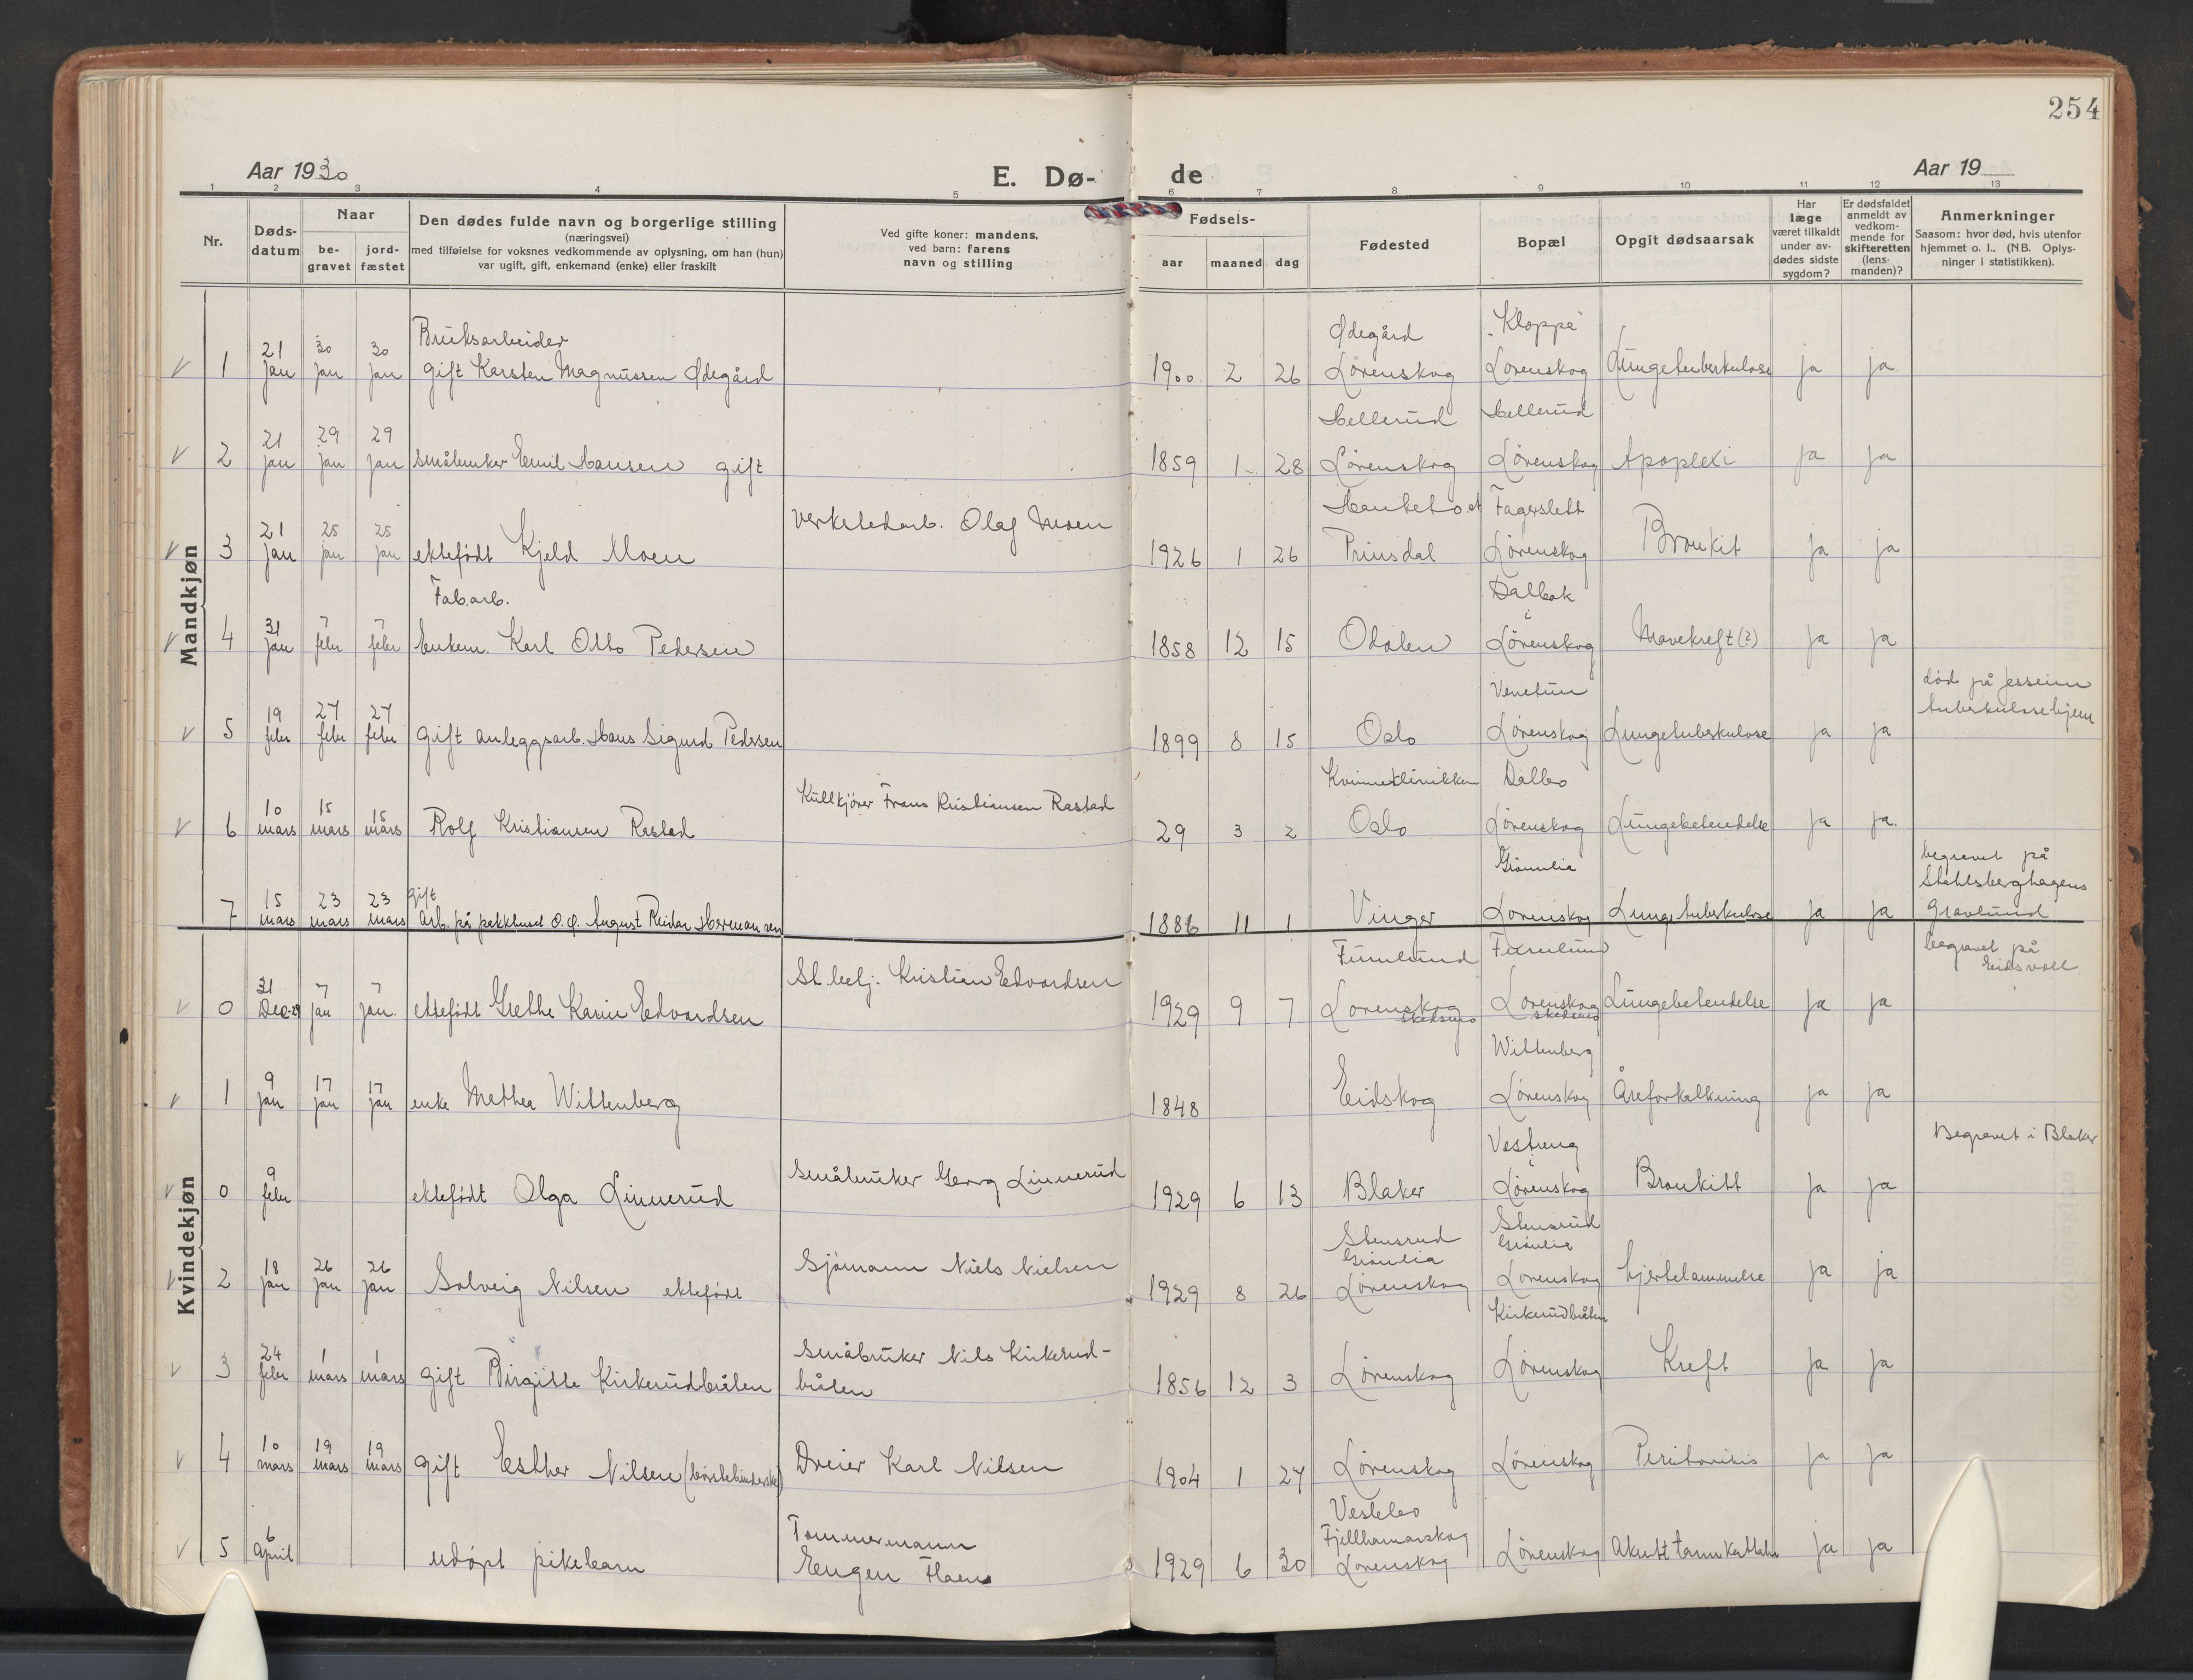 254
Aar 1930
E. Dø-
de
Aar 19
1 2 3 4 5 6 7 8 9 10 11 12 13
Nr.
Døds-
datum
Naar
be-
gravet
jord-
fæstet
Den dødes fulde navn og borgerlige stilling
(næringsvei)
med tilføielse for voksnes vedkommende av oplysning, om han (hun)
var ugift, gift, enkemand (enke) eller fraskilt
Ved gifte koner: mandens,
ved barn: farens
navn og stilling
Fødsels-
aar
maaned
dag
Fødested
Bopæl
Opgit dødsaarsak
Har
læge
været tilkaldt
under av-
dødes sidste
sygdom?
Er dødsfaldet
anmeldt av
vedkom-
mende for
skifteretten
(lens-
manden)?
Anmerkninger
Saasom: hvor død, hvis utenfor
hjemmet o. l., (NB. Oplys-
ninger i statistikken).
Mandkjøn
Bruksarbeider Ødegård "Kloppa"
V 1 21 jan 30 jan 30 jan gift Karsten Magnussen Ødegård 1900 2 26 Lørenskog Lørenskog Lungetuberkulose ja ja.
Hellerud Hellerud
V 2 21 jan 29 jan 29 jan småbruker Emil Hansen gift 1859 1 28 Lørenskog Lørenskog Apoplexi ja ja
verkstedarb. Olaf Moen Fagerslett
V 3 21 jan 25 jan 25 jan ektefødt Kjeld Moen 1926 1 26 Prinsdal Lørenskog Bronkit ja ja
Fab.arb. Dalbak
i
V 4 31 jan 7 febr 7 febr Enkem. Karl Otto Pedersen 1858 12 15 Odalen Lørenskog Mavekreft (?) ja ja
Venetun død på Jessheim
tuberkulosehjem
V 5 19 febr 27 febr 27 febr gift anleggsarb. Hans Sigurd Pedersen 1899 8 15 Oslo Lørenskog Lungetuberkulose ja ja
Kullkjører Frans Kristiansen Rastad Kvinneklinikken Dalbo
V 6 10 mars 15 mars 15 mars Rolf Kristiansen Rastad 29 3 2 Oslo Lørenskog Lungebetendelse ja ja.
gift Grønlia begravet på
Stahlsberghagens
7 15 mars 23 mars 23 mars Arb. på pakkhuset O.Ø. August Reidar Hermansen 1886 11 1 Vinger Lørenskog Lungetuberkulose ja ja Gravlund
Kvindekjøn
St.betj. Kristian Edvardsen Furulund Furulund begravet på
Eidsvoll
V 0 31 Dec-29 7 jan 7 jan. ektefødt Grethe Karin Edvardsen 1929 9 7 Lørenskog Lørenskog Lungebetendelse ja ja
Skedsmo Skedsmo
Wittenberg
V 1 9 jan 17 jan 17 jan enke Mathea Wittenberg 1848 Eidskog Lørenskog Åreforkalkning ja ja
småbruker Georg Linnerud Vestreng Begravet i Blaker
i
V 0 9 febr ektefødt Olga Linnerud 1929 6 13 Blaker Lørenskog Bronkitt ja ja
Sjømann Niels Nielsen Stensrud Stensrud
Grønlia Grønlia
V 2 18 jan 26 jan 26 jan Solveig Nilsen ektefødt 1929 8 26 Lørenskog Lørenskog hjertelammelse ja ja
Småbruker Nils Kirkerud- Kirkerudbråten
V 3 24 febr 1 mars 1 mars gift Birgitte Kirkerudbråten bråten 1856 12 3 Lørenskog Lørenskog Kreft ja ja
V 4 10 mars 19 mars 19 mars gift Esther Nilsen (børstebinderske) Dreier Karl Nilsen 1904 1 27 Lørenskog Lørenskog ja ja
Tømmermann Vestebo
Fjellhamarskog
V 5 6 April udøpt pikebarn Eugen 1929 6 30 Lørenskog Lørenskog Akutt tarmkatarrh ja ja